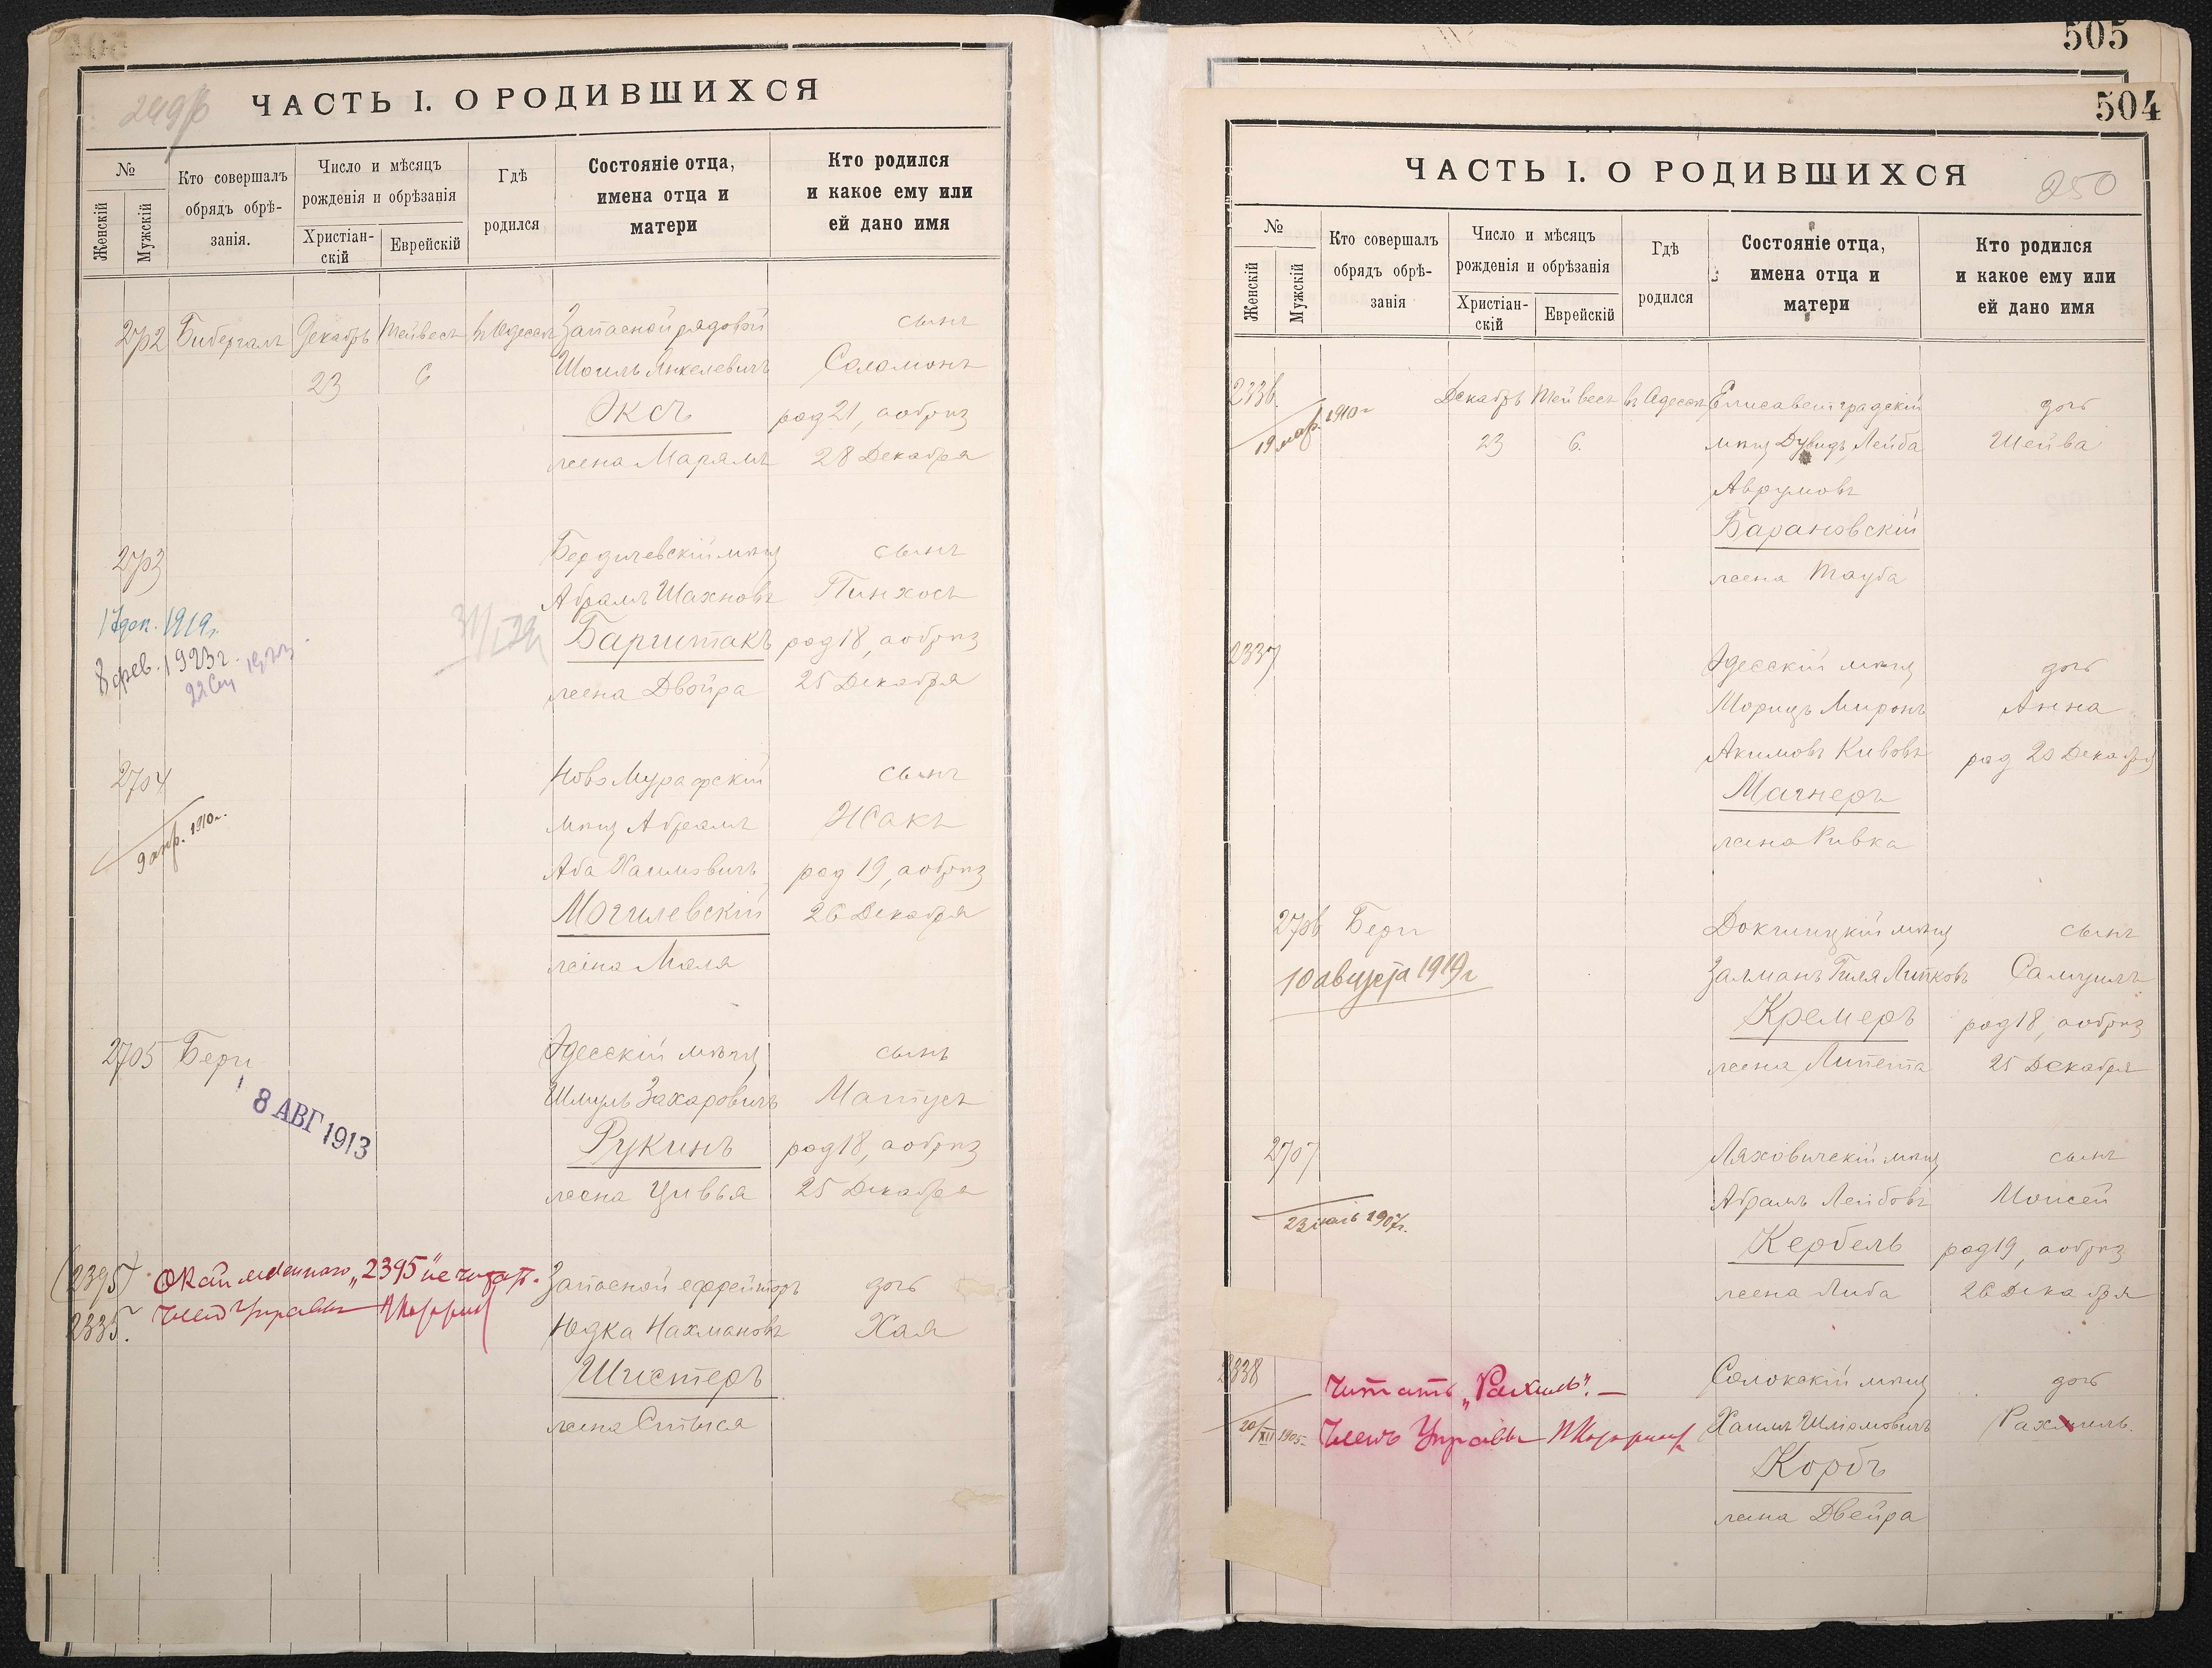 ЧАСТЬ I. О РОДИВШИХСЯ
№
Женскій
Мужскій
Кто совершалъ
обрядъ обрѣ-
занія.
Число и мѣсяцъ
рожденія и обрѣзанія
Христіан-
скій
Еврейскій
Гдѣ
родился
Состояніе отца,
имена отца и
матери
Кто родился
и какое ему или
ей дано имя
2702 Бибергалъ Декабрь Тейвесъ въ Одессѣ Запасной рядовой сынъ
23 6 Шоилъ Янкелевичъ Соломонъ
Эксъ род 21, а обрѣз
жена Марямъ 28 Декабря
2703 Бердичевскій мѣщ сынъ
Абрамъ Шахновъ Пинхосъ
17 дек. 1919 г.
Барштакъ род 18, а обрѣз
8 фев. 1923 г.
жена Двойра 25 Декабря
2704 Ново Мурафскій сынъ
мѣщ Абрамъ Исакъ
9 апр. 1910 г.
Аба Хаимовичъ род 19, а обрѣз
Могилевскій 26 Декабря
жена Маля
2705 Бери Одесскій мѣщ сынъ
Шмуль Захаровичъ Матусъ
8 АВГ 1913
Рукинъ род 18, а обрѣз
жена Цивья 25 Декабря
(2395) "2395" не читать. Запасной ефрейторъ дочь
2335. Членъ Управы Юдка Нахмановъ Хая
Шистеръ
жена
505
504
ЧАСТЬ I. О РОДИВШИХСЯ
250
№
Женскій
Мужскій
Кто совершалъ
обрядъ обрѣ-
занія
Число и мѣсяцъ
рожденія и обрѣзанія
Христіан-
скій
Еврейскій
Гдѣ
родился
Состояніе отца,
имена отца и
матери
Кто родился
и какое ему или
ей дано имя
2336. Декабрь Тейвесъ въ Одессѣ Елисаветградскій дочь
19 мар. 1910 г
23 6. мѣщ Дувидъ Лейба Шейва
Аврумовъ
Барановскій
жена Тауба
2337 Одесскій мѣщ дочь
Морицъ Миронъ Анна
Акимовъ Кивовъ род 20 Декабря
Магнеръ
жена Ривка
2706 Бери Докшицкій мѣщ сынъ
10 августа 1919 г Залманъ Гиля Липковъ Самуилъ
Кремеръ род 18, а обрѣз
жена Липета 25 Декабря
2707 Ляховичскій мѣщ сынъ
Абрамъ Лейбовъ Моисей
1907 г.
Кербель род 19, а обрѣз
жена Либа 26 Декабря
2338 Читать "Рахиль". — Солокскій мѣщ дочь
20/XII 1905. Членъ Управы Хаимъ Шліомовичъ Рахиль.
Корбъ
жена Двейра